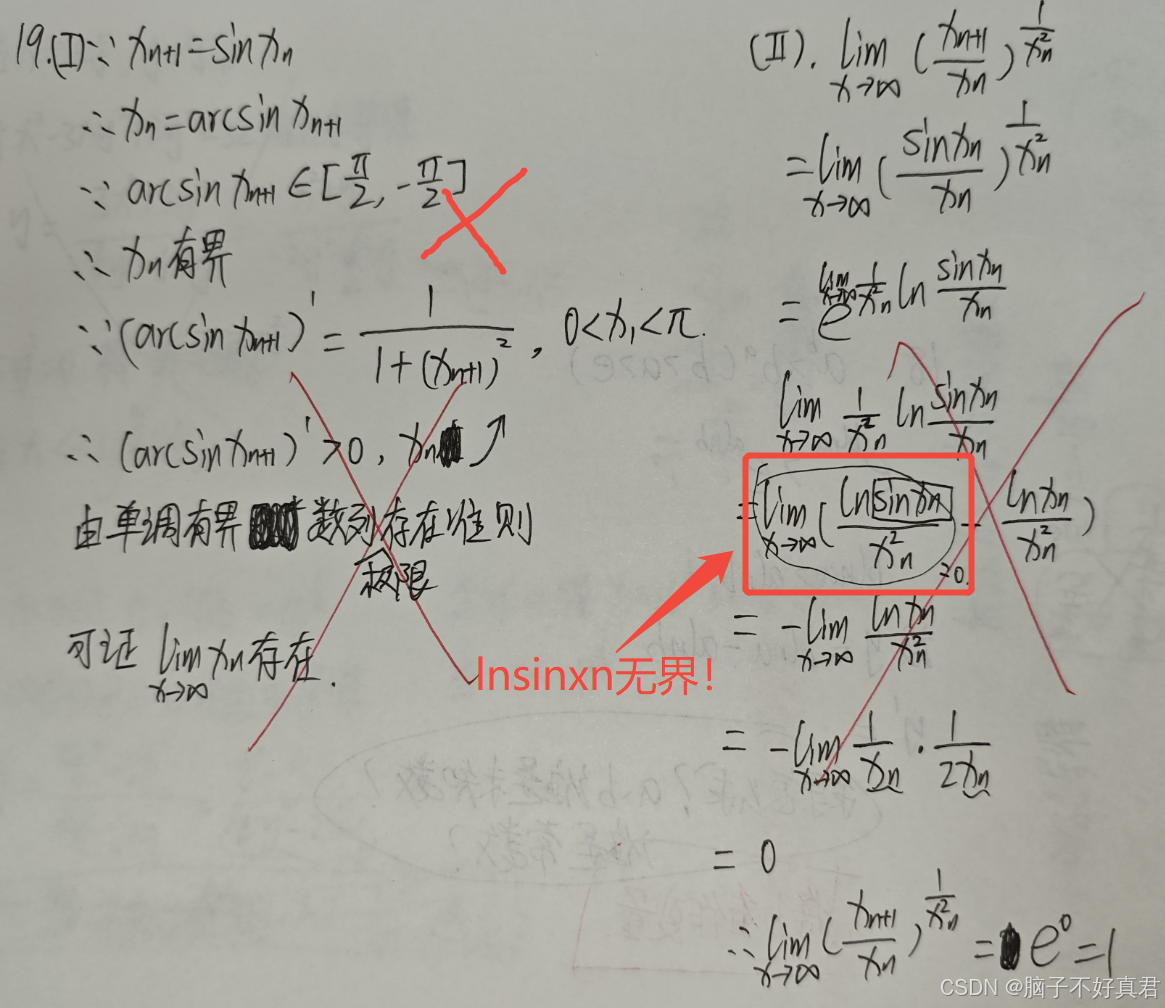 19.(I)∵ x_{n+1}=sin x_n
∴ x_n=arcsin x_{n+1}
∵ arcsin x_{n+1} ∈[π/2, -π/2]
∴ x_n有界
∵ (arcsin x_{n+1})' = 1/(1+(x_{n+1})^2), 0<x_1<π.
∴ (arcsin x_{n+1})'>0, x_n ↗
由单调有界 数列存在准则
极限
可证 lim_{x→∞} x_n 存在.
(II). lim_{x→∞} (x_{n+1}/x_n)^{1/x_n^2}
= lim_{x→∞} (sin x_n/x_n)^{1/x_n^2}
= e^{lim_{x→∞} 1/x_n^2 ln sin x_n/x_n}
lim_{x→∞} 1/x_n^2 ln sin x_n/x_n
= lim_{x→∞} (ln sin x_n/x_n^2 - ln x_n/x_n^2)
=0.
lnsinxn无界！
= -lim_{x→∞} ln x_n/x_n^2
= -lim_{x→∞} 1/x_n · 1/2x_n
= 0
∴ lim_{x→∞} (x_{n+1}/x_n)^{1/x_n^2} = e^0=1
CSDN @脑子不好真君